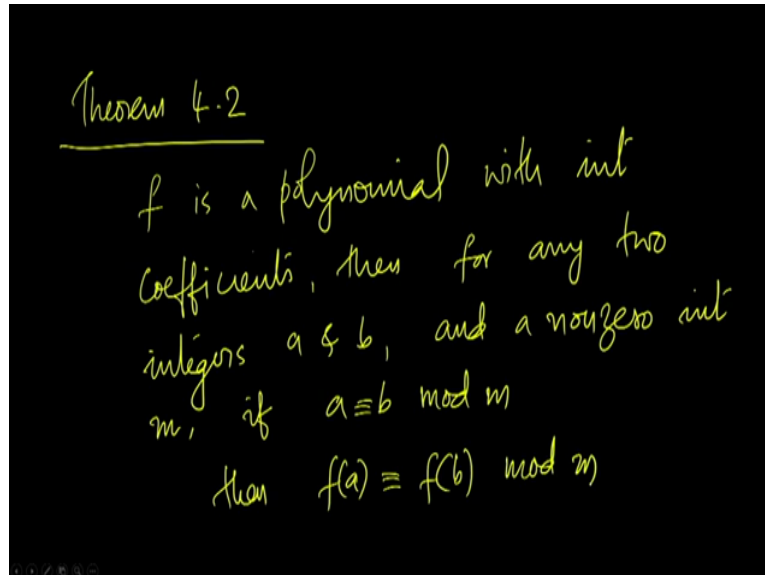 Theorem 4.2
f is a polynomial with int
coefficients, then for any two
integers a & b, and a nonzero int
m, if a≡b mod m
then f(a) ≡ f(b) mod m